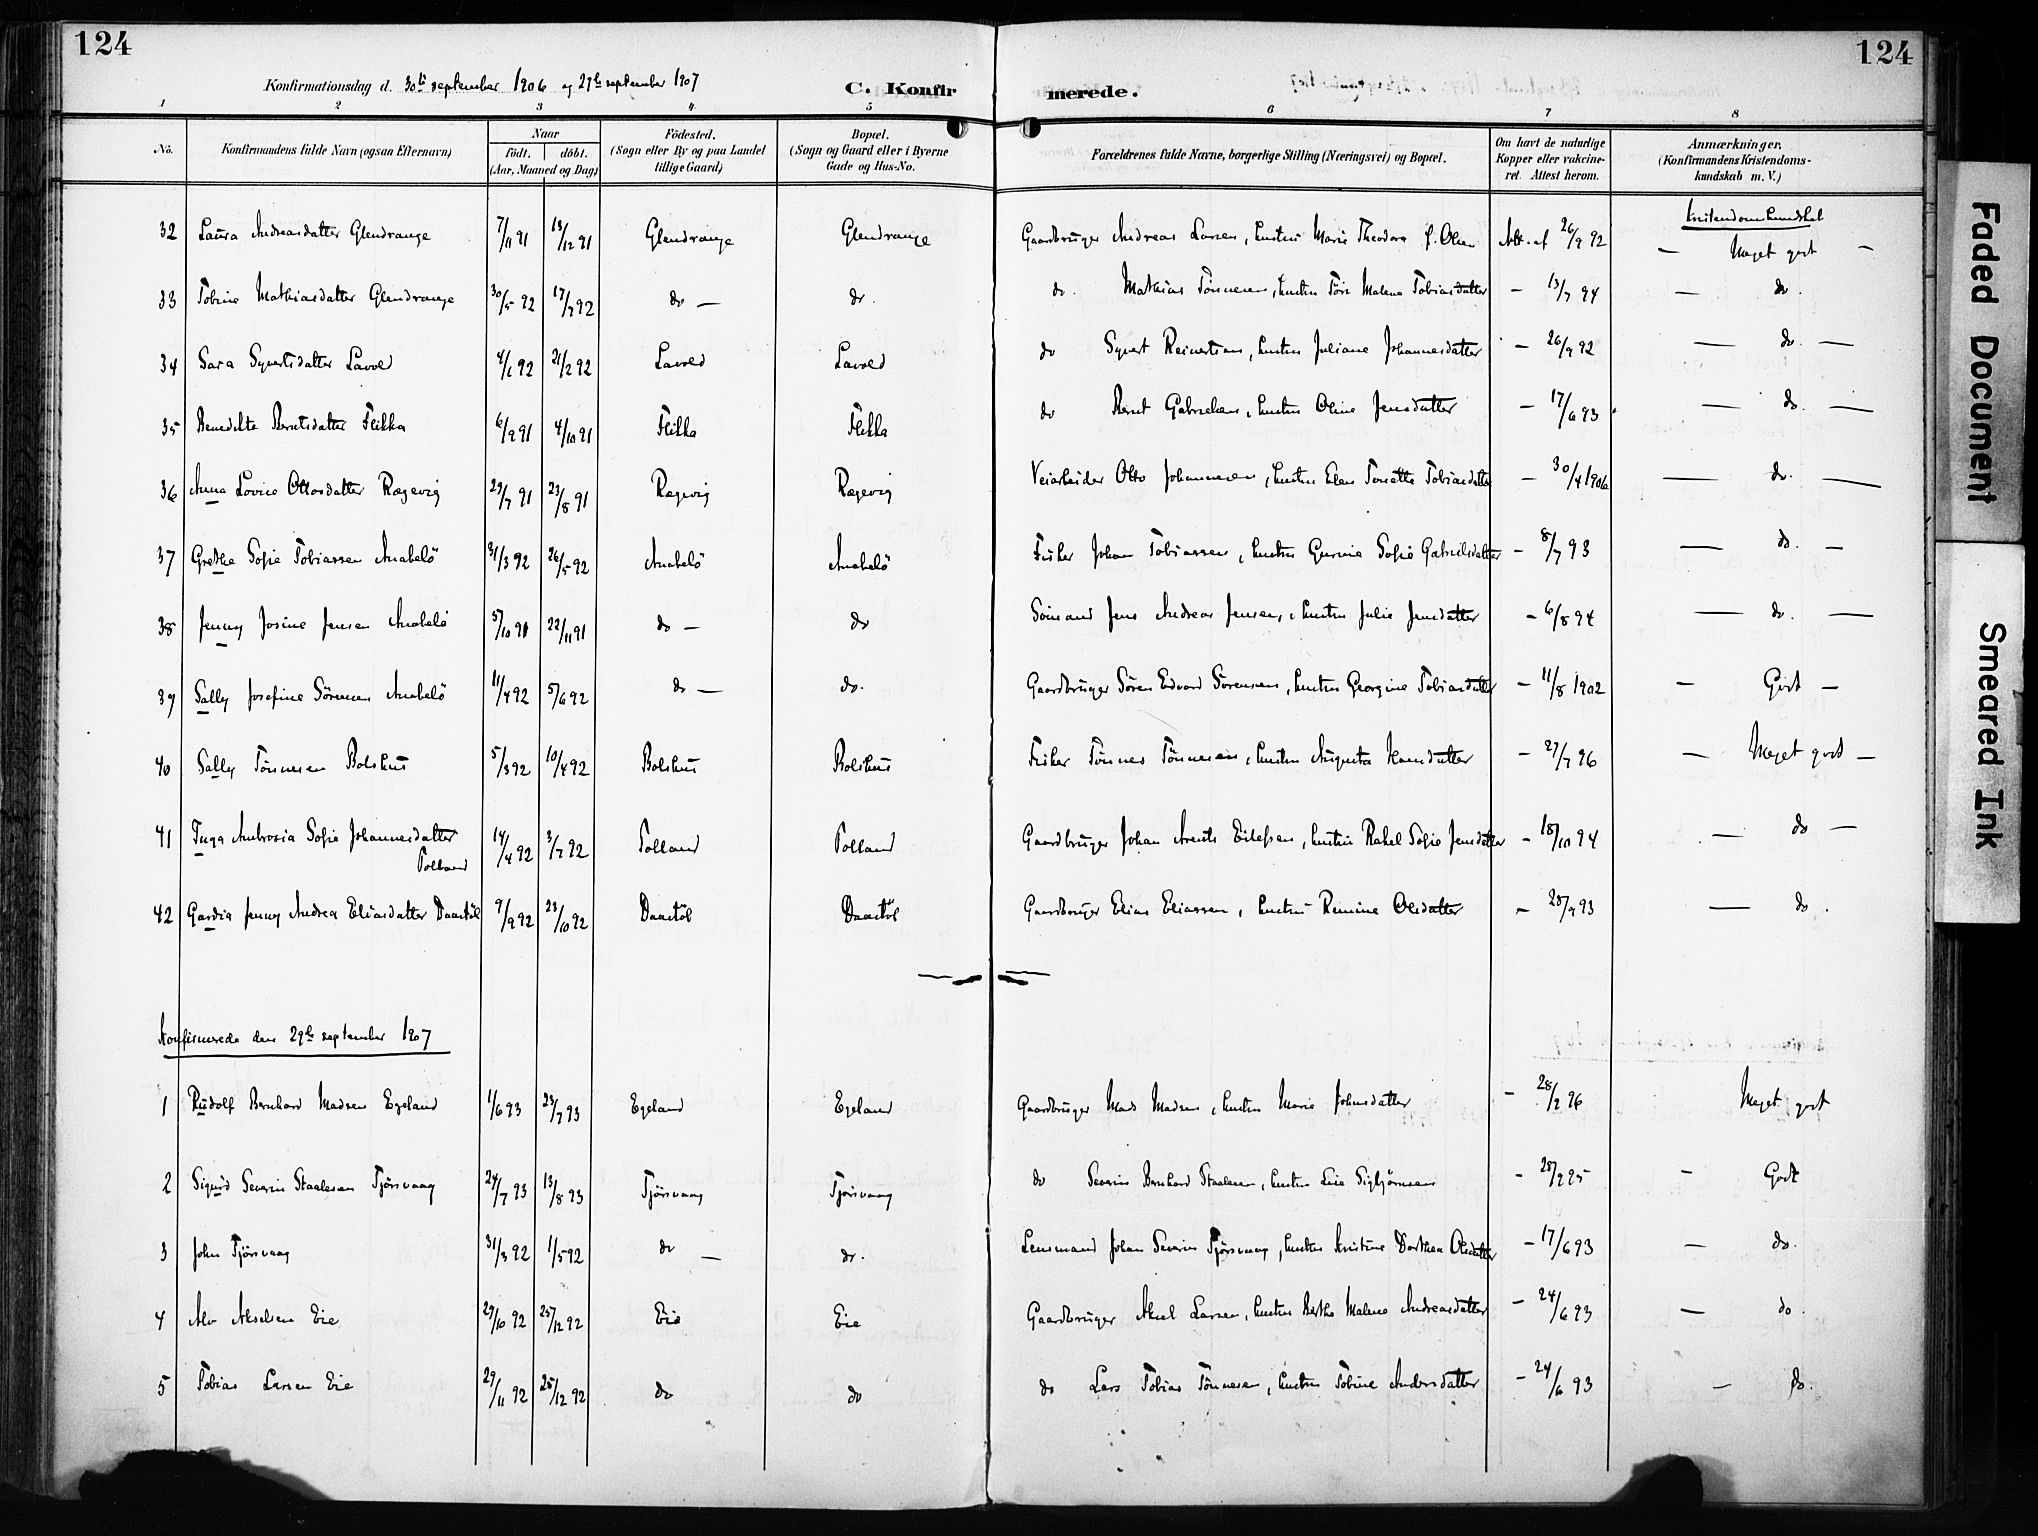 124
124
Konfirmationsdag d. 30te september 1906 og 29de september 1907
C. Konfir
merede.
1 2 3 4 5 6 7 8
No. Konfirmandens fulde Navn (ogsaa Efternavn) Naar födt. döbt. (Aar, Maaned og Dag) Födested. (Sogn eller By og paa Landet tillige Gaard) Bopæl. (Sogn og Gaard eller i Byerne Gade og Hus-No. Forældrenes fulde Navne, borgerlige Stilling (Næringsvei) og Bopæl. Om havt de naturlige Kopper eller vakcineret. Attest herom. Anmærkninger. (Konfirmandens Kristendomskundskab m. V.)
Kristendomskundskab
32 Laura Andreasdatter Glendrange 7/11 91 18/12 91 Glendrange Glendrange Gaardbruger Andreas Larsen, hustru Marie Theodora f. Olsen Att. af 26/9 92 — Meget godt —
33 Tobine Mathiasdatter Glendrange 30/5 92 17/7 92 do — do. do. Mathias Tönnesen, hustru Malene Tobiasdatter — 13/7 94 — do.
34 Sara Syvertsdatter Lavold 4/1 92 21/2 92 Lavold Lavold do Syvert Reinertsen, hustru Juliane Johannesdatter — 26/9 92 — do. —
35 Benedikte Berntsdatter Flikka 6/9 91 4/10 91 Flikka Flikka do Bernt Gabrielsen, hustru Oline Jensdatter — 17/6 93 — do. —
36 Anna Lovise Ottosdatter Rægevig 29/7 91 23/8 91 Rægevig Rægevig Veiarbeider Otto Johannesen, hustru Elen Tonette Tobiasdatter — 30/4 1906 — do. —
37 Grethe Sofie Tobiassen Anabelö 31/3 92 26/5 92 Anabelö Anabelö Fisker Johan Tobiassen, hustru Gurine Sofie Gabrielsdatter — 8/7 93 — do. —
38 Jenny Josine Jensen Anabelö 5/10 91 22/11 91 do — do Sömand Jens Andreas Jensen, hustru Julie Jensdatter — 6/8 94 — do. —
39 Sally Josefine Sörensen Anabelö 11/4 92 5/6 92 do — do. Gaardbruger Sören Edvard Sörensen, hustru Georgine Tobiasdatter — 11/8 1902 — Godt —
40 Sally Tönnesen Bolshus 5/3 92 10/4 92 Bolshus Bolshus Fisker Tönnes Tönnesen, hustru Augusta Hansdatter — 27/7 96 — Meget godt —
41 Inga Ambrosia Sofie Johannesdatter 14/4 92 3/7 92 Tolland Tolland Gaardbruger Johan Arents Eilefsen, hustru Rakel Sofie Jensdatter — 18/10 94 — do —
Tolland
42 Gardia Jenny Andrea Eliasdatter Daastöl 9/9 92 23/10 92 Daastöl Daastöl Gaardbruger Elias Eliassen, hustru Remine Olsdatter — 28/9 93 — do.
Konfirmerede den 29de september 1907
1 Rudolf Bernhard Madsen Egeland 1/6 93 23/7 93 Egeland Egeland Gaardbruger Mads Madsen, hustru Marie Johnsdatter — 28/2 96 Meget godt
2 Sigurd Severin Staalesen Tjörsvaag 24/7 93 13/8 93 Tjörsvaag Tjörsvaag do Severin Bernhard Staalesen, hustru Lise Sigbjörnsen — 28/2 95 — Godt
3 John Tjörsvaag 31/3 92 1/5 92 do — do. Lensmand Johan Severin Tjörsvaag, hustru Kristine Dorthea Olsdatter — 17/6 93 — do.
4 Alv Akselsen Eie 29/10 92 25/12 92 Eie Eie Gaardbruger Aksel Larsen, hustru Berthe Malene Andreasdatter — 24/6 93 — do.
5 Tobias Larsen Eie 29/11 92 25/12 92 do do do Lars Tobias Tönnesen, hustru Tobine Andersdatter — 24/6 93 — do.
Faded Document
Smeared Ink